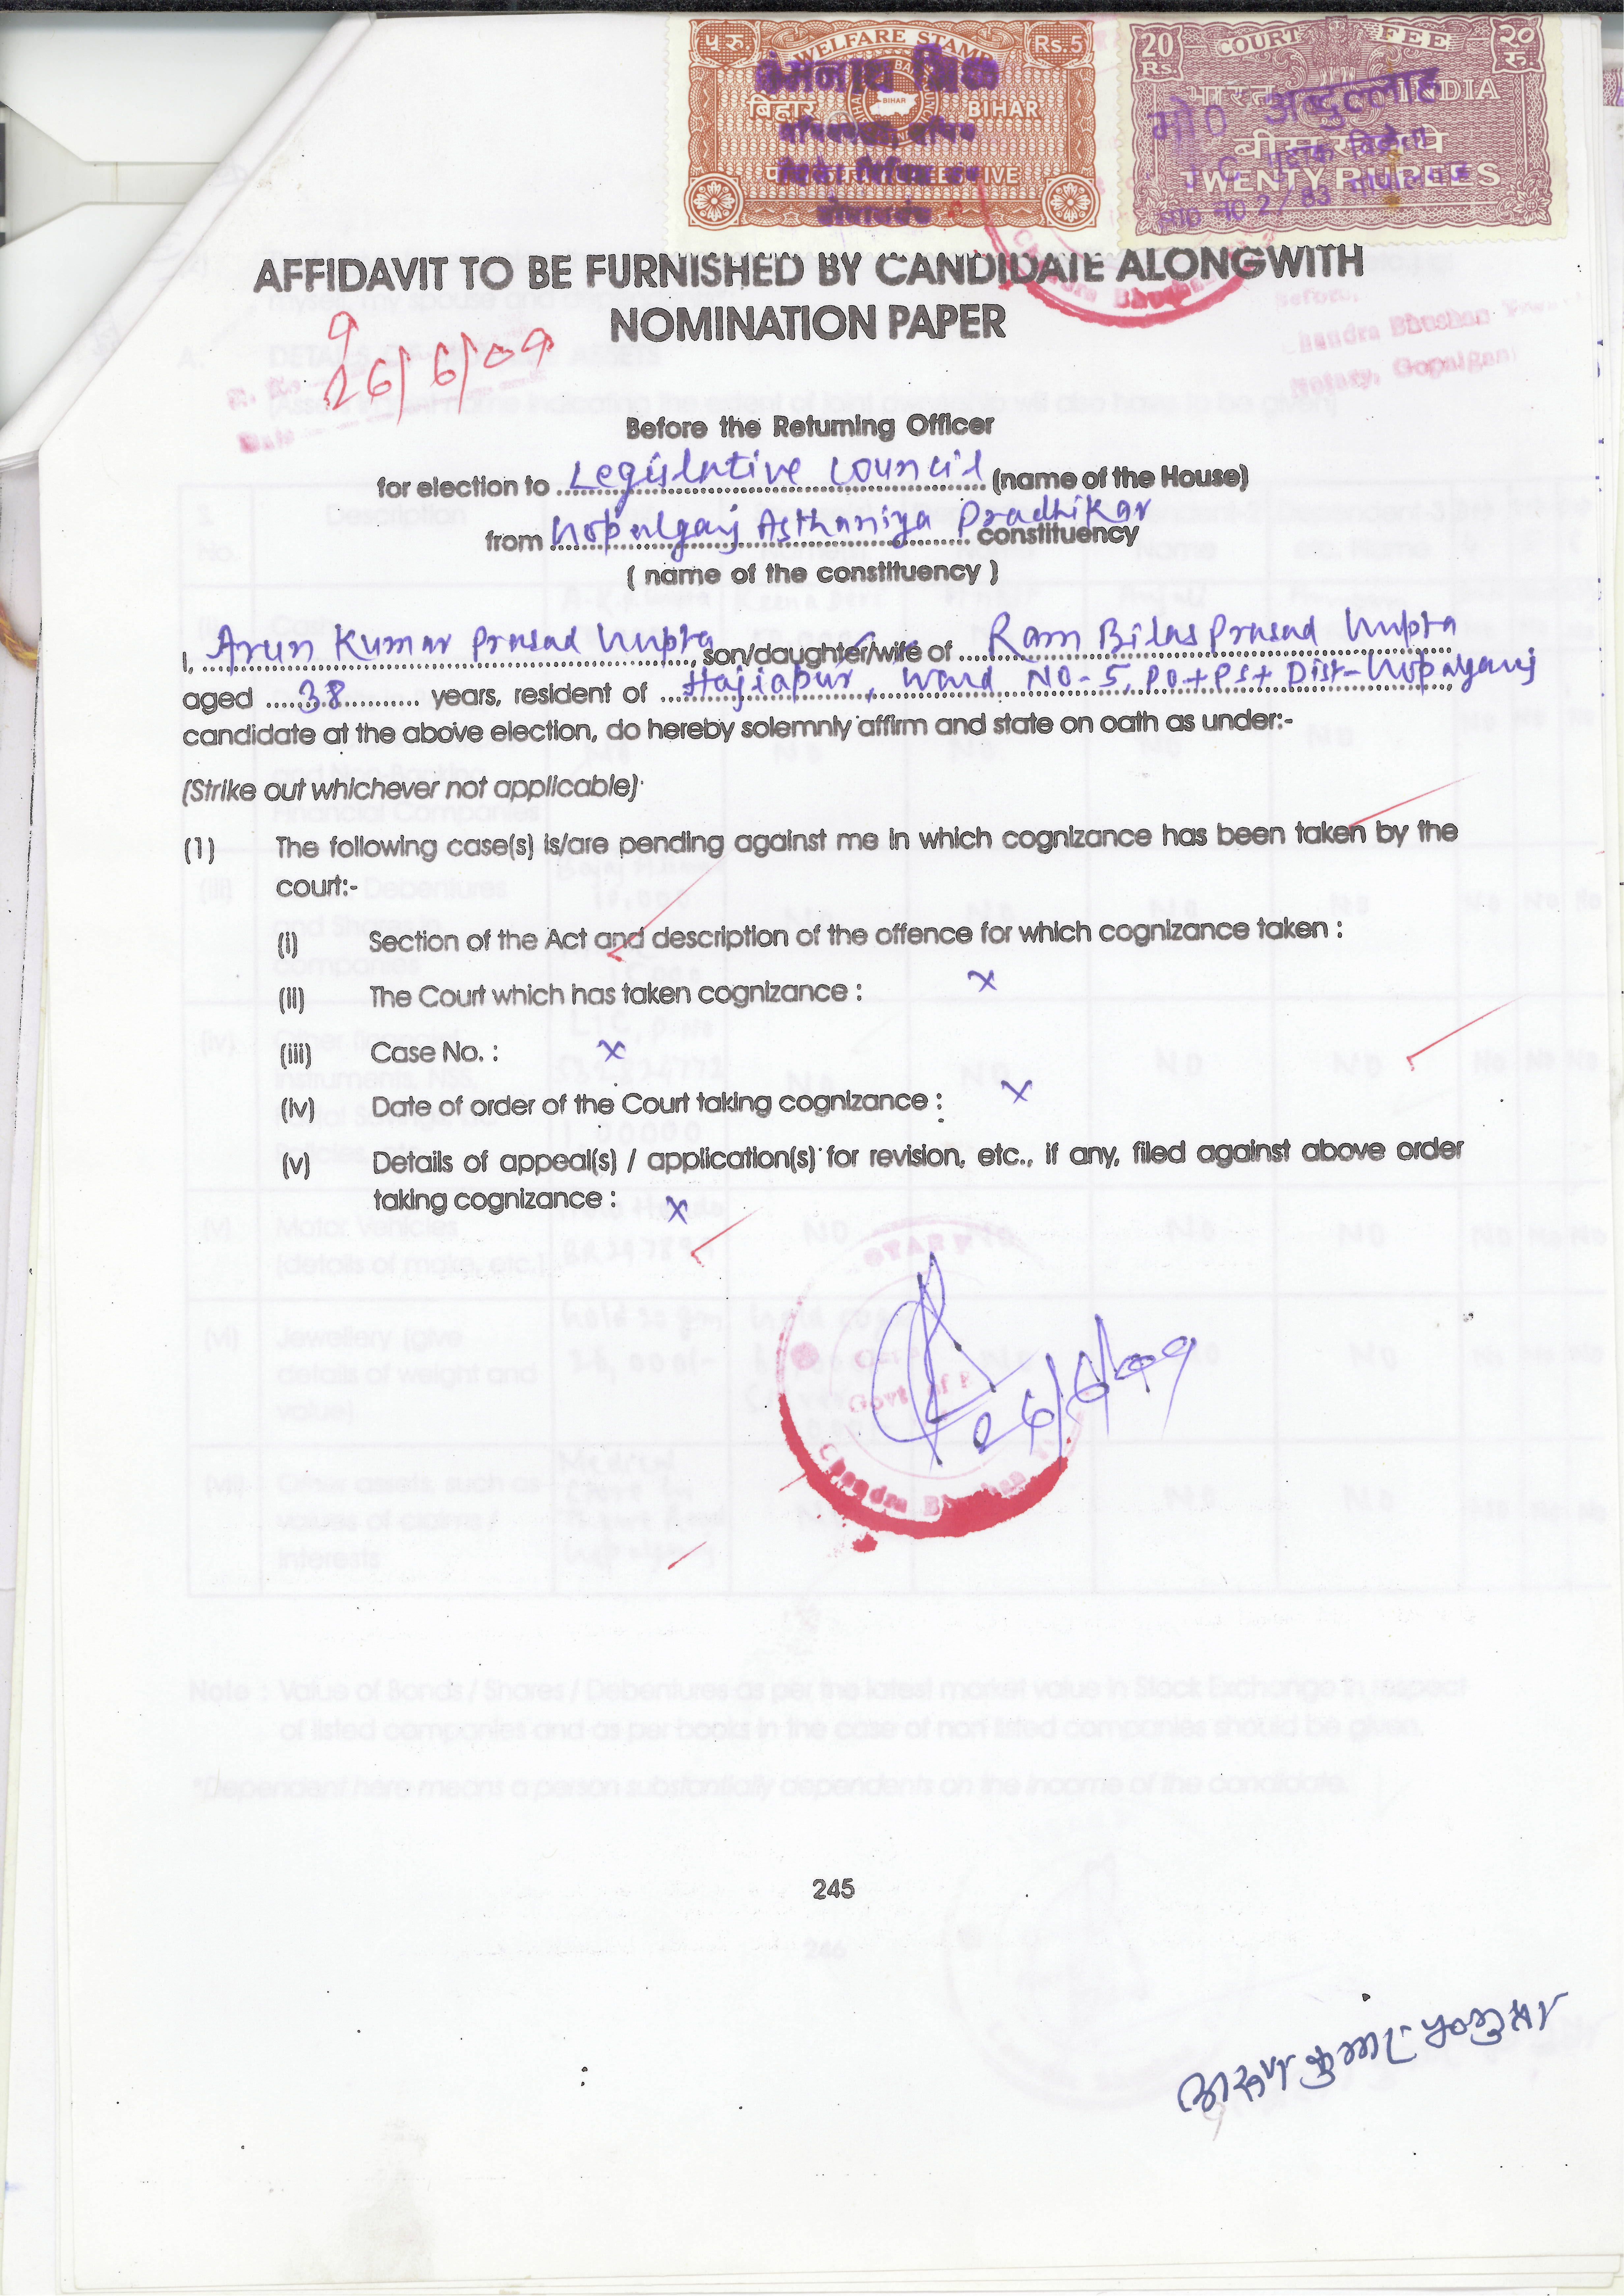 प रु. WELFARE STAMP Rs.5
बिहार BIHAR BIHAR
20 Rs. COURT FEE २० रु.
भारत INDIA
मो० अब्दुल्लाह
बीस रुपये
TWENTY RUPEES
AFFIDAVIT TO BE FURNISHED BY CANDIDATE ALONGWITH
NOMINATION PAPER
9
26/6/09
Before,
Chandra Bhushan
Notary, Gopalganj
Before the Returning Officer
for election to Legislative Council (name of the House)
from Gopalganj Asthaniya Pradhikar constituency
( name of the constituency )
I, Arun Kumar Prasad Gupta, son/daughter/wife of Ram Bilas Prasad Gupta
aged 38 years, resident of Hajiapur, Ward No-5, PO+PS+ Dist-Gopalganj
candidate at the above election, do hereby solemnly affirm and state on oath as under:-
(Strike out whichever not applicable)
(1) The following case(s) is/are pending against me in which cognizance has been taken by the
court:-
(i) Section of the Act and description of the offence for which cognizance taken :
(ii) The Court which has taken cognizance : x
(iii) Case No. : x
(iv) Date of order of the Court taking cognizance : x
(v) Details of appeal(s) / application(s) for revision, etc., if any, filed against above order
taking cognizance : x
Govt. of
26/6/09
Chandra Bhushan
245
अरुण कुमार